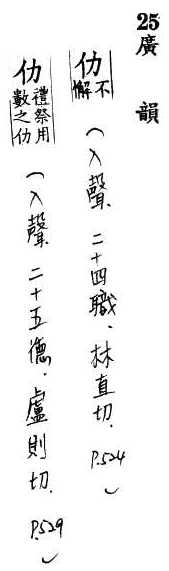 25廣韻
仂不解（入聲．二十四職．林直切．P.524
仂禮祭用數之仂（入聲．二十五德．盧則切．P.529